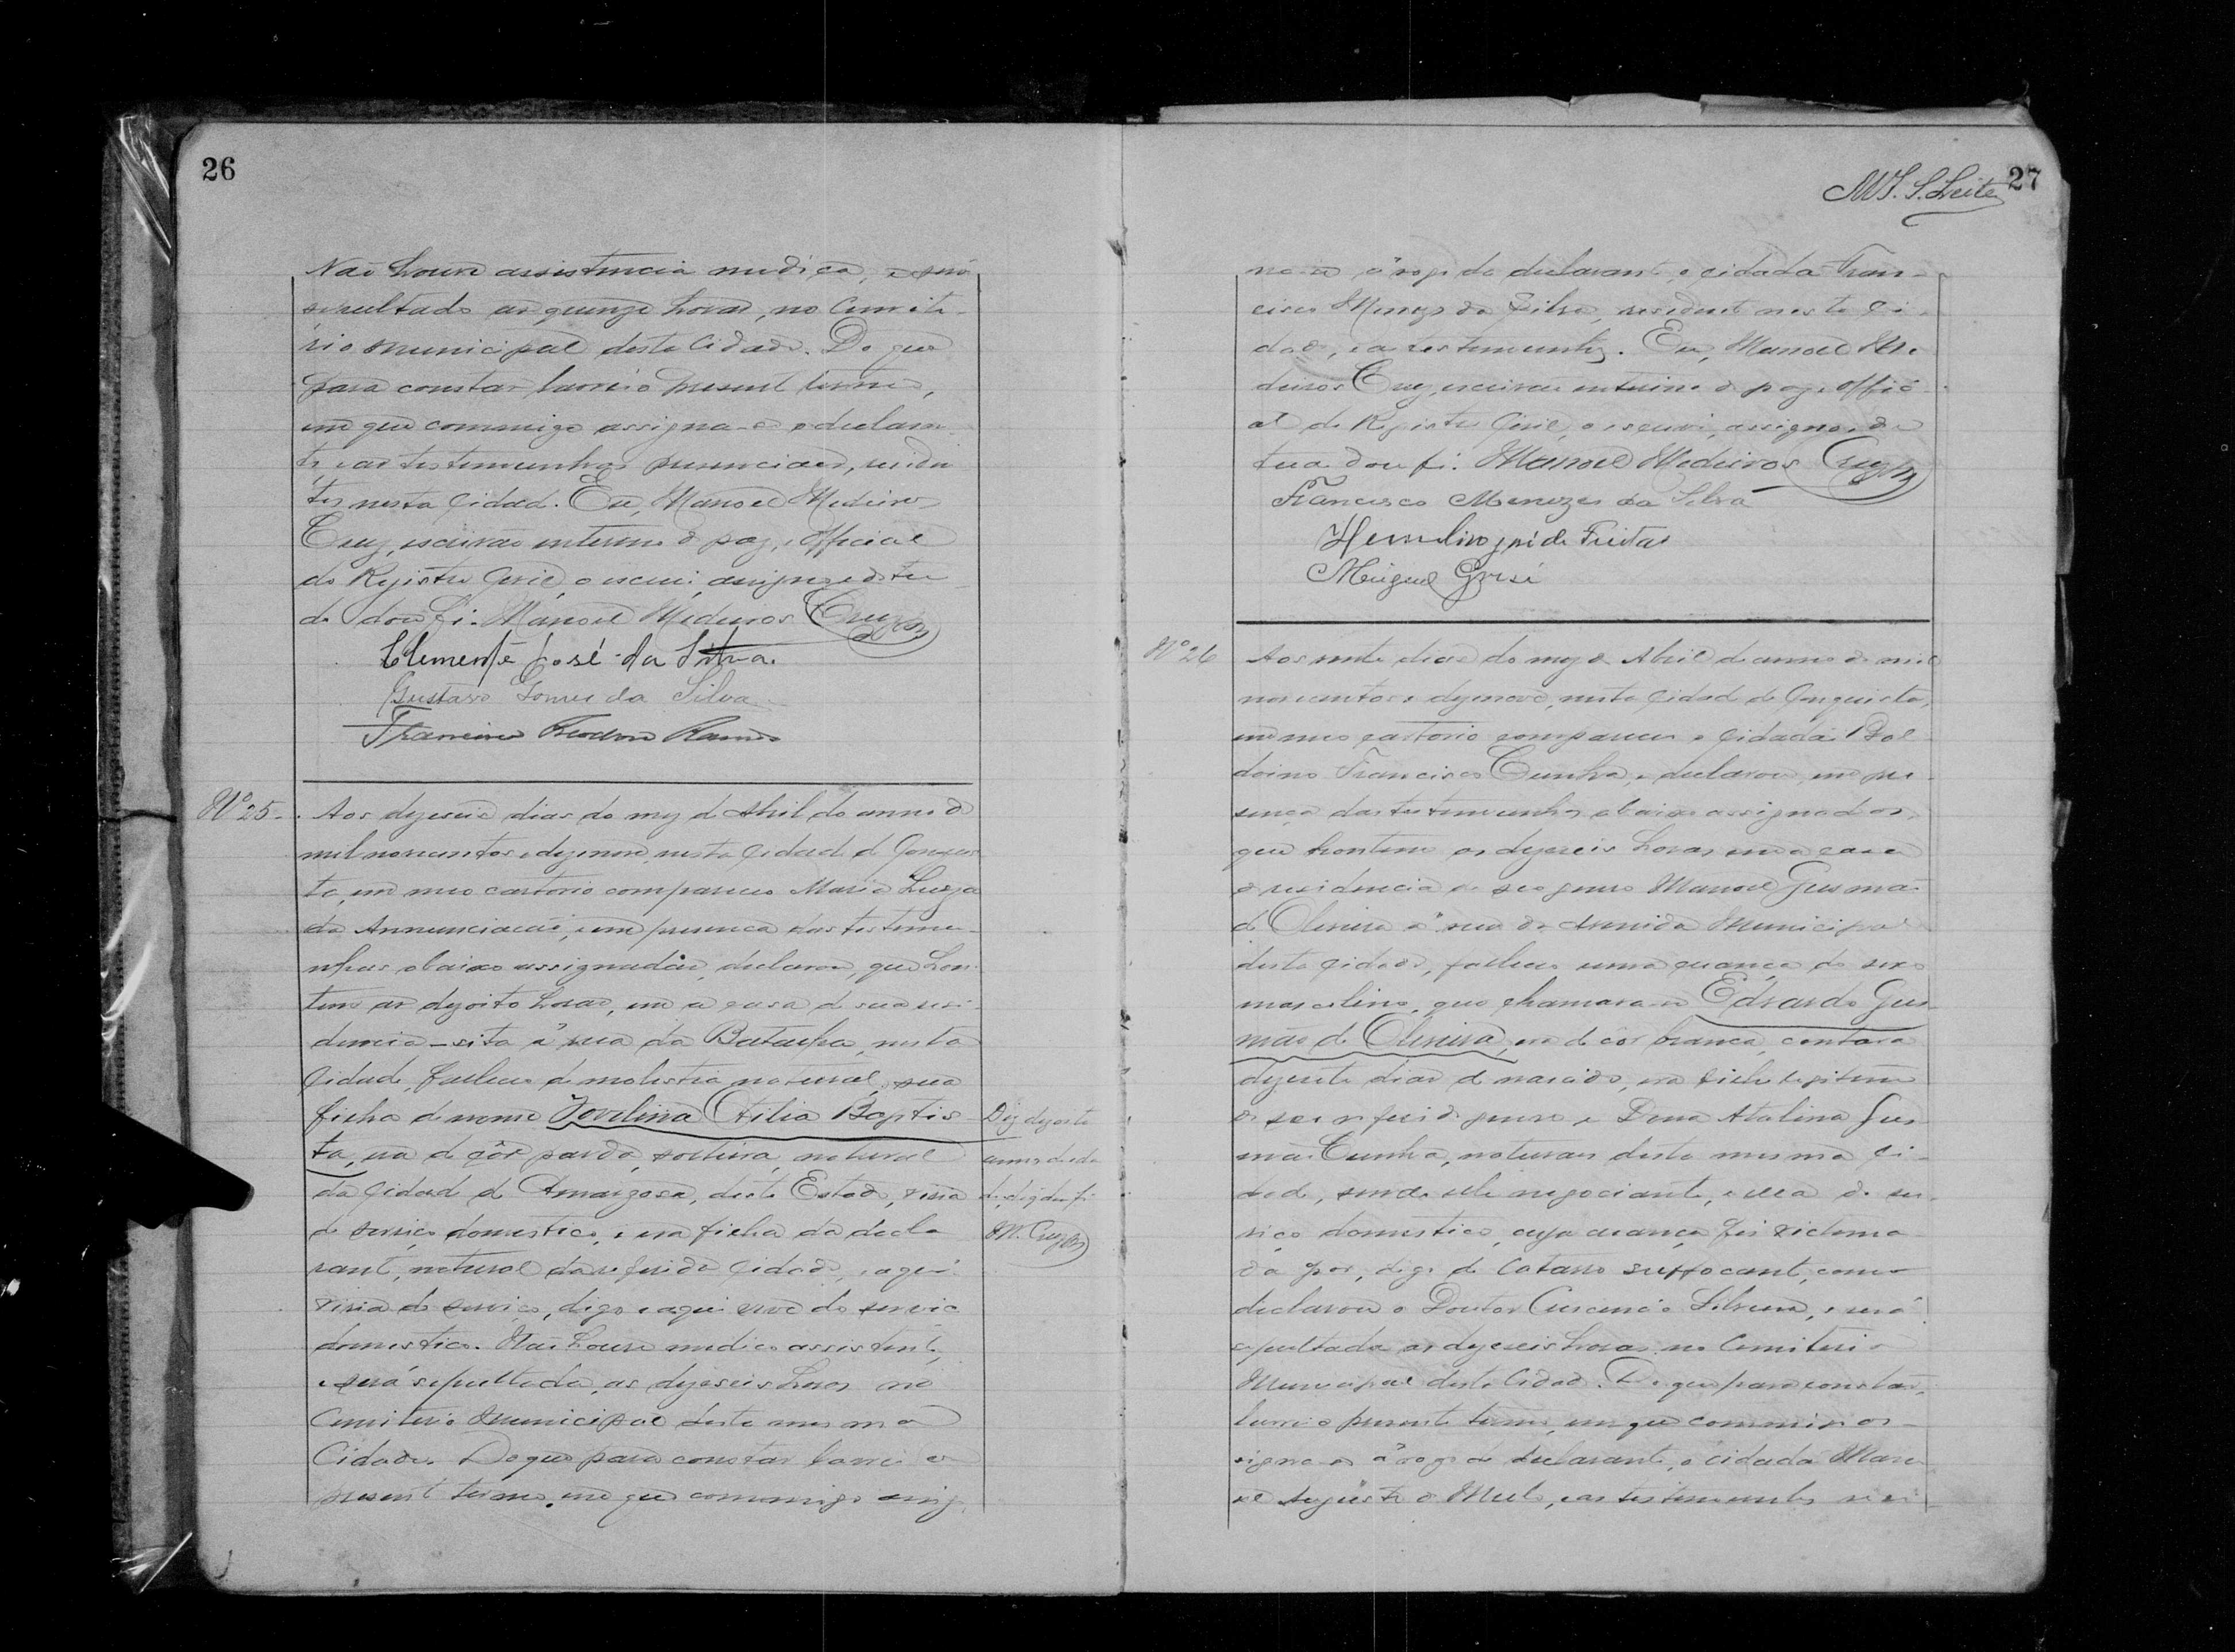 26
Não houve assistencia medica, e será
sepultado as quinze horas, no Cemite-
rio Municipal desta Cidade. Do que
para constar lavrei o presente termo,
em que commigo assigna-se o declaran-
te, e as testemunhas presenciaes, residen
tes nesta Cidade. Eu, Manoel Medeiros
Cruz, escrivão interino de paz, e official
do Registro Civil, o escrevi, assigno e
dou fé. Manoel Medeiros Cruz
Clemente José da Silva
Gustavo Gomes da Silva
Francisco Ramos
Nº 25 -
Aos dezeseis dias do mez de Abril do anno de
mil novecentos e dezenove, nesta Cidade de Conquis
ta, em meo cartorio compareceo Maria Luiza
da Annunciação, e em presença das testemu-
nhas abaixo assignadas, declarou, que hon-
tem as dezoito horas, em a casa de sua resi-
dencia - sita á rua da Batalha, nesta
Cidade, falleceo de molestia natural, sua
filha de nome Jovelina Otilia Baptis-
ta, era de côr parda, solteira, natural
da Cidade de Amargosa, deste Estado, vivia
do serviço domestico, e era filha da decla
rante, natural da referida Cidade, e aqui
vivia do serviço, digo e aqui vive do serviço
domestico. Não houve medico assistente,
e será sepultada, as dezeseis horas no
Cemiterio Municipal desta mesma
Cidade. Do que para constar lavrei o
presente termo, em que commigo assig-
M. Cruz
27
M J. S. Leite
na-se á rogo da declarante, o cidadão Fran-
cisco Menezes da Silva, residente nesta Ci-
dade, e as testemunhas. Eu, Manoel Me
deiros Cruz, escrivão interino de paz, e offici-
al do Registro Civil, o escrevi, assigno, e
dou fé. Manoel Medeiros Cruz
Francisco Menezes da Silva
José de Freitas
Miguel Grisi
Nº 26
Aos vinte dias do mez de Abril do anno de mil
novecentos e dezenove, nesta Cidade de Conquista,
em meo cartorio compareceu o Cidadão Bal
doino Francisco Cunha, e declarou, em pre-
sença das testemunhas abaixo assignadas,
que hontem as dezeseis horas em a casa
e residencia de seo genro Manoel Gusmão
de Oliveira á rua da Avenida Municipal
desta Cidade, falleceo uma creança do sexo
masculino, que chamava-se Edvardo Gus-
mão de Oliveira, era de côr branca, contava
dezesete dias de nascido, era filho legitimo
de seo referido genro e Dona Atalina Gus
mão Cunha, naturaes desta mesma Ci-
dade, sendo elle negociante, e ella do ser-
viço domestico, cuja creança foi victima
da por, digo de Catarro suffocante, como
declarou o Doutor Crescencio Silveira, e será
sepultada as dezeseis horas no Cemiterio
Municipal desta Cidade. Do que para constar,
lavrei o presente termo, em que commigo as-
signa-se á rogo do declarante, o cidadão Mano
el de Mello, e as testemunhas resi-